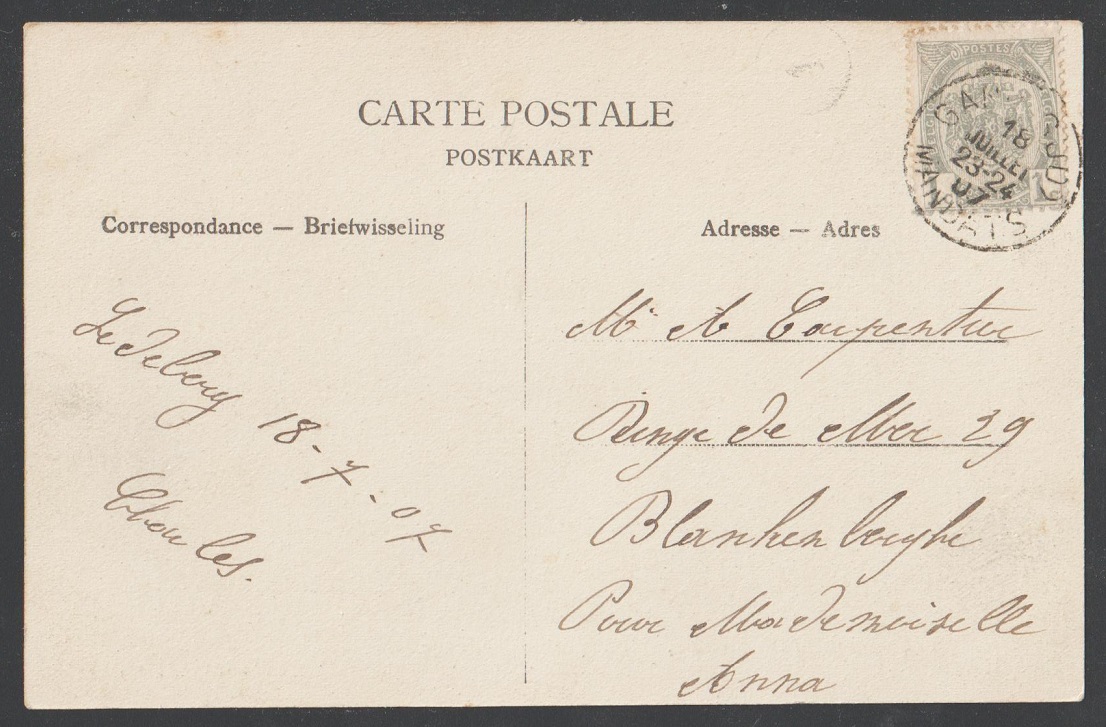 CARTE POSTALE
POSTKAART
Correspondance — Briefwisseling
Ledeberg 18-7-07
Charles.
Adresse — Adres
POSTES
18
JUILLET
23-24
07
MANDATS
Mr A Carpentier
Dinge de Mer 29
Blankenberghe
Pour Mademoiselle
Anna